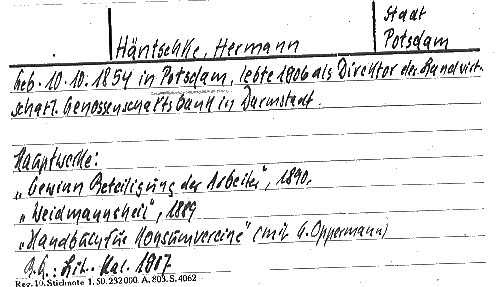 Stadt
Häntschke, Hermann Potsdam
Geb. 10.10.1854 in Potsdam, lebte 1906 als Direktor der Landwirt-
schaftl. Genossenschaftsbank in Darmstadt.
Hauptwerke:
„Gewinn Beteiligung der Arbeiter", 1890.
„Weidmannsheil", 1889
„Handbuch für Konsumvereine" (mit G. Oppermann)
B.G.: Lit. Kal. 1907
Reg. 10. Stichnote 1. 50. 232000. A. 803. S. 4062